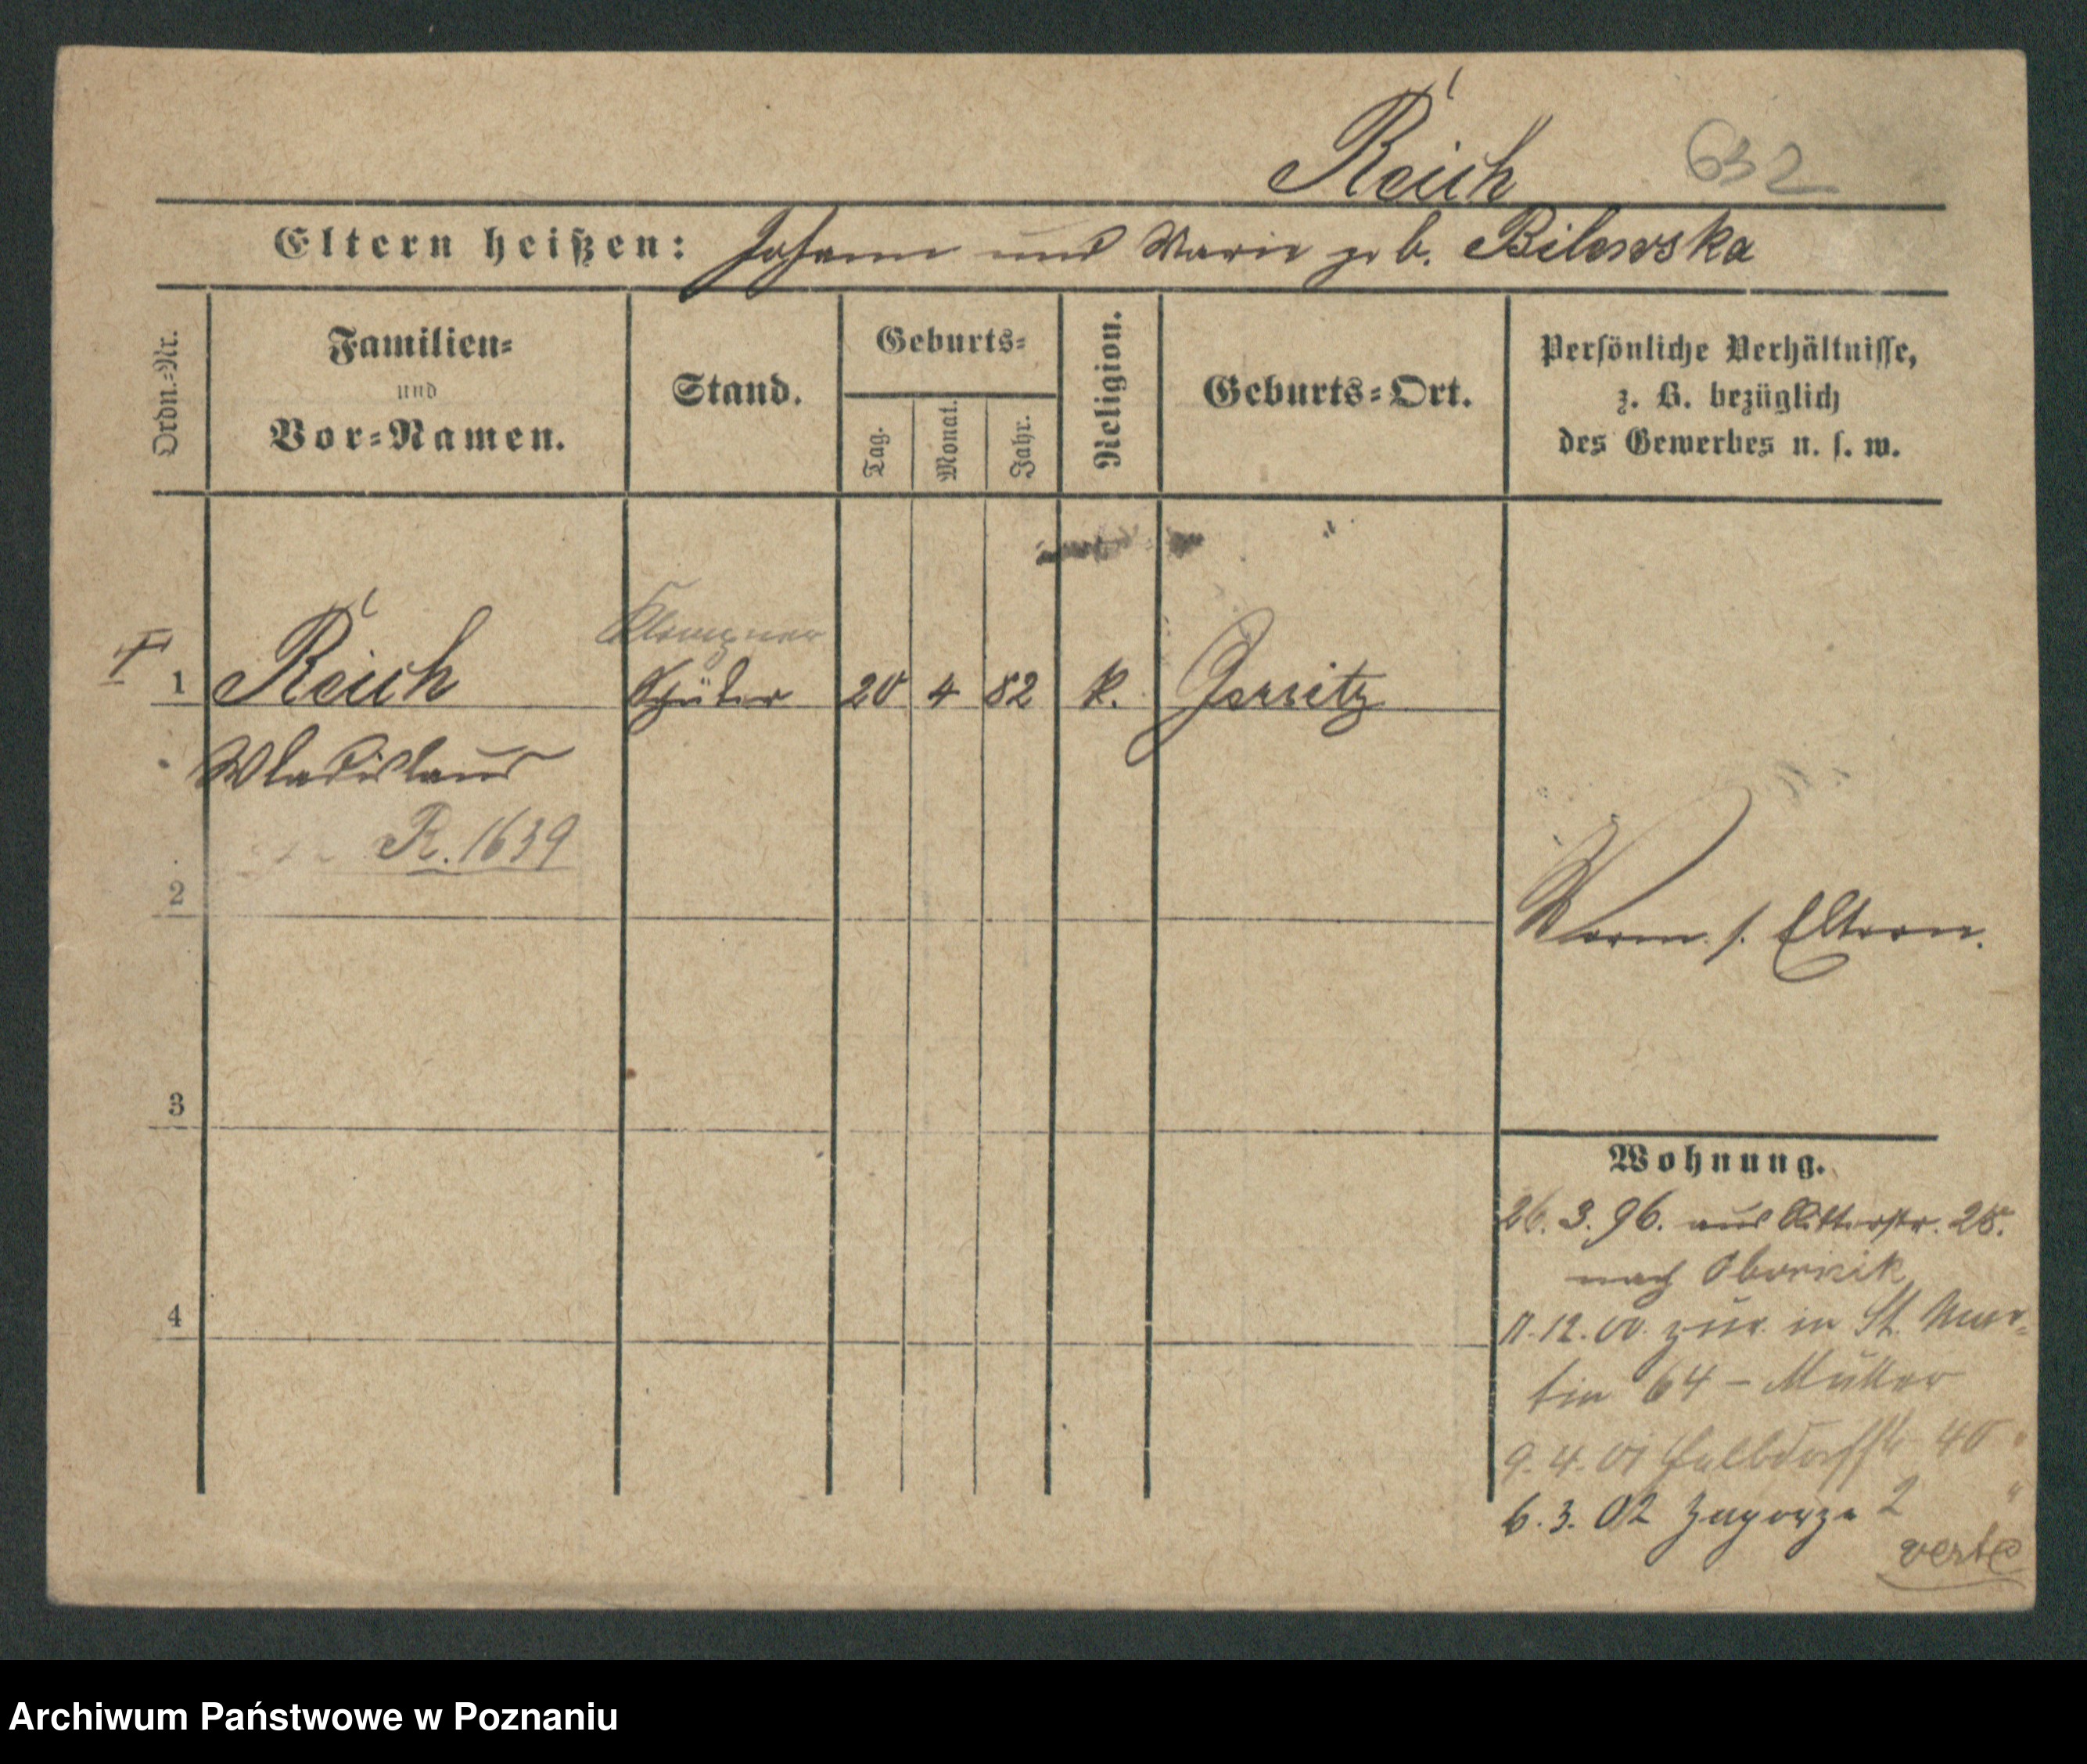 Reich 632
Eltern heißen: Johann und Marie geb. Bilewska
Ordn.-Nr.
Familien-
und
Vor-Namen.
Stand.
Geburts-
Tag.
Monat.
Jahr.
Religion.
Geburts-Ort.
Persönliche Verhältnisse,
z. B. bezüglich
des Gewerbes u. s. w.
Klempner
1 Reich Schüler 20 4 82 k. Jersitz
Wladislaus
R. 1639
2
Vorm. s. Eltern.
3
Wohnung.
26. 3. 96. aus Ritterstr. 28.
nach Obornik
4
11. 12. 00. zur. in St. Mar-
tin 64 – Müller
9. 4. 01 40
6. 3. 02 Zagorze 2
verte
Archiwum Państwowe w Poznaniu